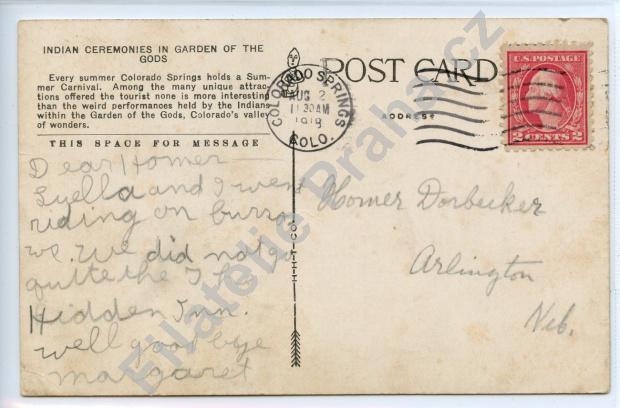 INDIAN CEREMONIES IN GARDEN OF THE
GODS
Every summer Colorado Springs holds a Sum-
mer Carnival. Among the many unique attrac-
tions offered the tourist none is more interesting
than the weird performances held by the Indians
within the Garden of the Gods, Colorado's valley
of wonders.
THIS SPACE FOR MESSAGE
Dear Homer
Luella and I went
riding on burro
we. we did not go
quite the
Hidden Inn.
well good bye
margaret
POST CARD
ADDRESS
COLORADO SPRINGS
AUG 2
11 30 AM
1918
COLO.
U.S. POSTAGE
2 CENTS 2
H-H-T-CO.
Homer Dorbecker
Arlington
Neb.
Filatelie Praha.cz